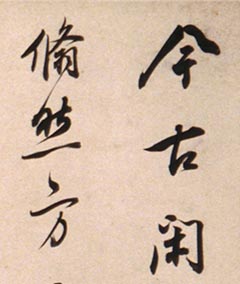 今古闲
翛然方